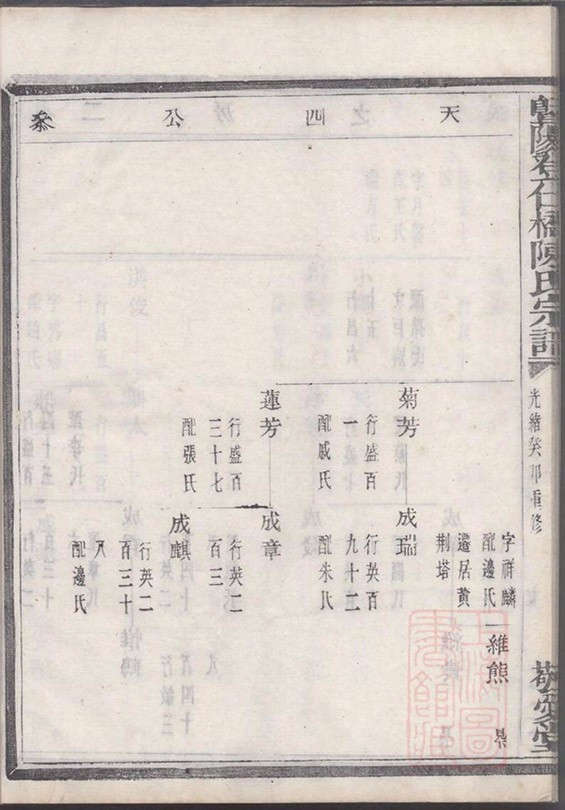 暨陽孝仁橋陳氏宗譜
光緒癸卯重修
敬愛堂
天四公 叅
字祥麟
配邊氏
遷居黄
荆塔
維熊
菊芳
行盛百
一
配戚氏
成瑞
行英百
九十二
配朱氏
蓮芳
行盛百
三十七
配張氏
成章
行英二
百三
成麒
行英二
百三十
八
配邊氏
上海圖
書館藏